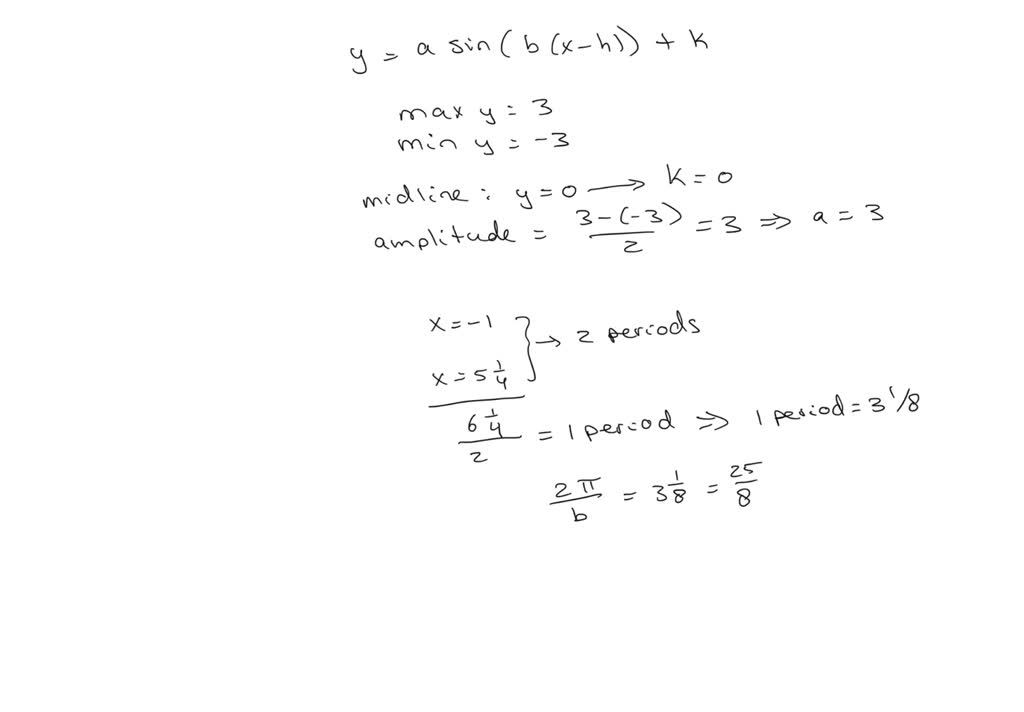 y = a sin(b(x-h)) + k
max y = 3
min y = -3
midline: y=0 → k=0
amplitude = 3-(-3)/2 = 3 ⇒ a = 3
x=-1
x=5 1/4 } → 2 periods
6 1/4 / 2 = 1 period ⇒ 1 period = 3 1/8
2π/b = 3 1/8 = 25/8